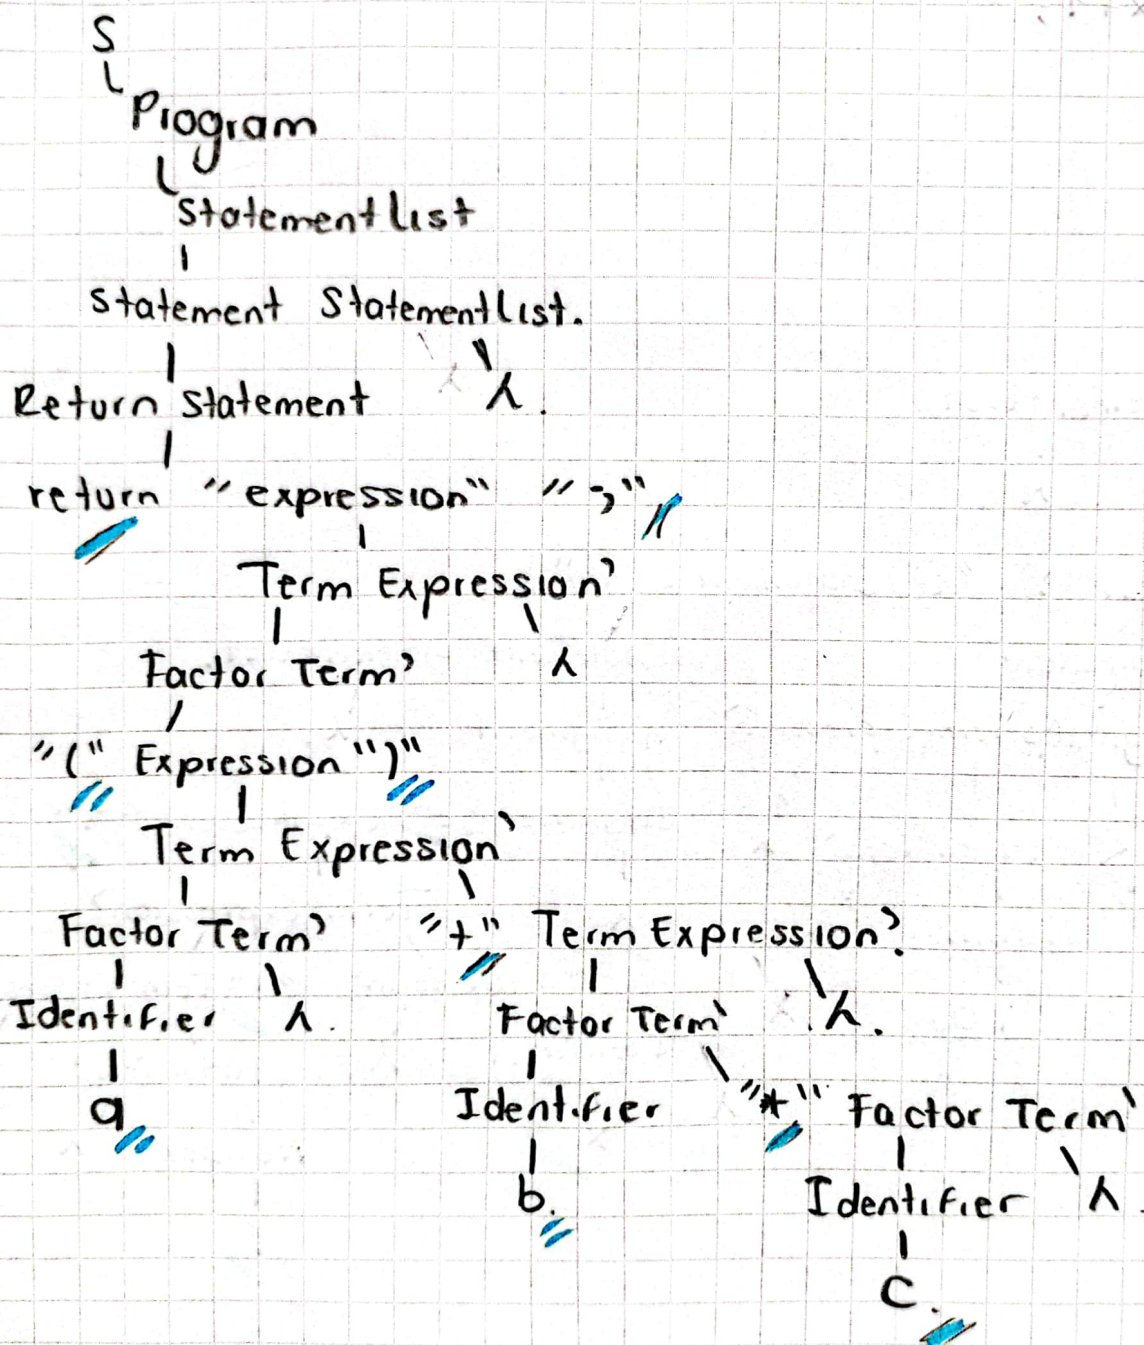 S
Program
Statement list
Statement Statement list.
Return Statement λ.
return "expression" ";"
Term Expression'
Factor Term' λ
"(" Expression ")"
Term Expression'
Factor Term' "+" Term Expression'.
Identifier λ. Factor Term' λ.
a Identifier "*" Factor Term'
b. Identifier λ.
C.